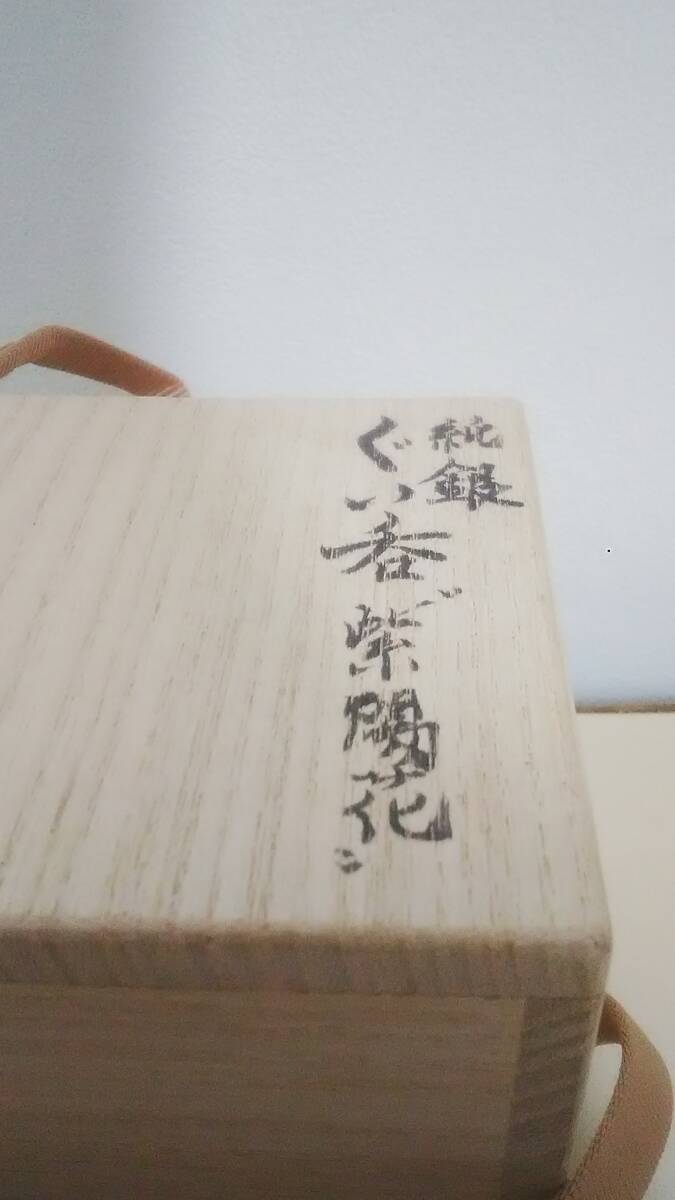 純銀
ぐい呑〝紫陽花〟